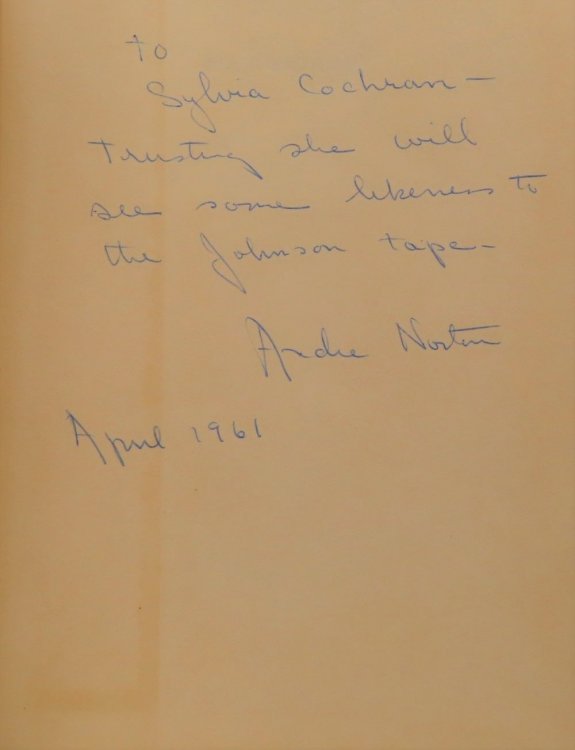 to
Sylvia Cochran —
Trusting she will
see some likeness to
the Johnson tape —
Andre Norton
April 1961